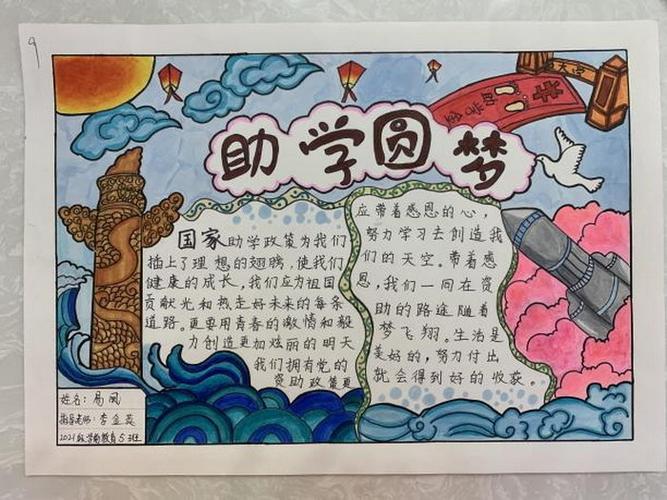 9
助学金
助学圆梦
国家助学政策为我们
插上了理想的翅膀,使我们
健康的成长,我们应为祖国
贡献光和热走好未来的每条
道路。更要用青春的激情和毅
力创造更加炫丽的明天
我们拥有党的
资助政策更
应带着感恩的心,
努力学习去创造我
们的天空。带着感
恩,我们一同在资
助的路途随着
梦飞翔。生活是
美好的,努力付出
就会得到好的收获。
姓名:易凤
指导老师:李金英
2021级学前教育5班